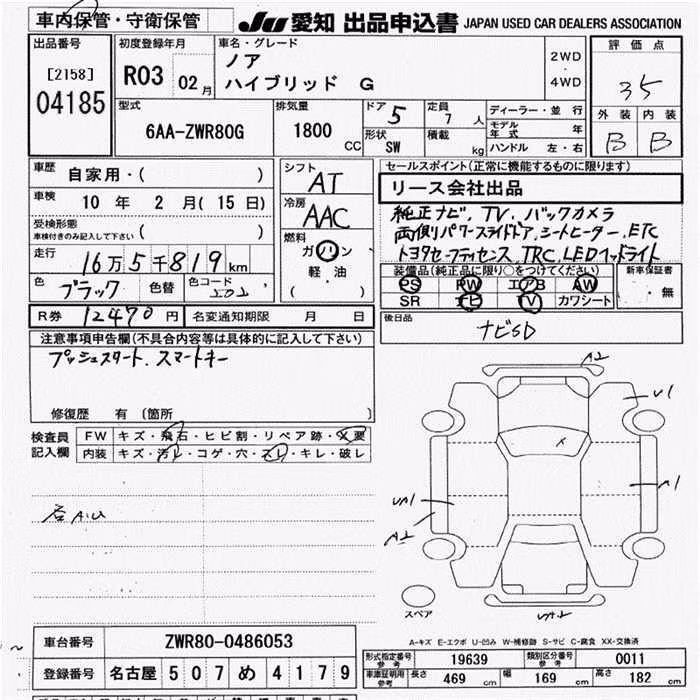 車内保管・守衛保管
JU 愛知 出品申込書 JAPAN USED CAR DEALERS ASSOCIATION
出品番号
[2158]
04185
初度登録年月
R03 02月
車名・グレード
ノア
ハイブリッド G
2WD
・
4WD
評価点
3.5
外装 内装
B B
型式
6AA-ZWR80G
排気量
1800 CC
ドア 5
形状 SW
定員 7 人
積載 kg
ディーラー・並行
モデル年式 年
ハンドル 左・右
車歴 自家用・( )
車検 10年 2月(15日)
受検形態
車検付きのみ記入して下さい ( )
走行 16万5千819km
色 ブラック 色替 色コード 202
シフト AT
冷房 AAC
燃料
ガソリン
軽・油
( )
セールスポイント(正常に機能するものに限ります)
リース会社出品
純正ナビ、TV、バックカメラ
両側パワースライドドア、シートヒーター、ETC
トヨタセーフティセンス、TRC、LEDヘッドライト
装備品(純正品に限り○をつけてください)
PS PW エアB AW
SR ナビ TV カワシート
新車保証書
・無
後日品
ナビSD
R券 12470円 名変通知期限 月 日
注意事項申告欄(不具合内容等は具体的に記入して下さい)
プッシュスタート、スマートキー
修復歴 有(箇所 )
検査員記入欄
FW キズ・飛石・ヒビ割・リペア跡・X要
内装 キズ・汚レ・コゲ・穴・スレ・キレ・破レ
各A.U
A2
U1
A1
UA1
A2
UA2
スペア
A-キズ E-エクボ U-凹み W-補修跡 S-サビ C-腐食 XX-交換済
車台番号 ZWR80-0486053
登録番号 名古屋 507 め 4179
型式指定番号 参考 19639 類別区分番号 参考 0011
車庫証明用 参考 長さ 469 cm 幅 169 cm 高さ 182 cm